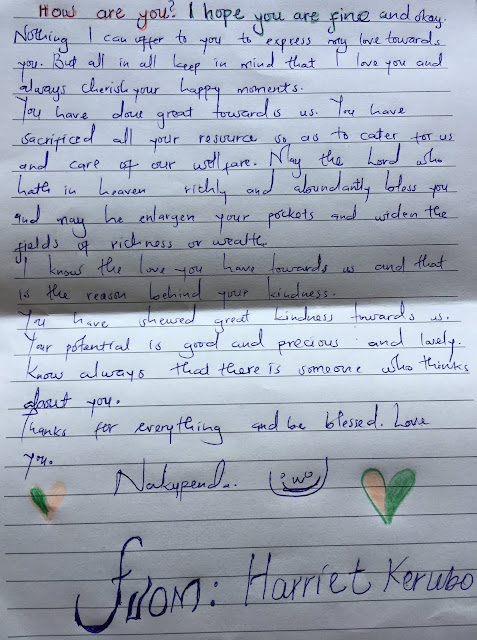 How are you? I hope you are fine and okay.
Nothing I can offer to you to express my love towards
you. But all in all keep in mind that I love you and
always cherish your happy moments.
You have done great towards us. You have
sacrificed all your resource so as to cater for us
and care of our welfare. May the Lord who
hath in heaven richly and abundantly bless you
and may he enlargen your pockets and widen the
fields of richness or wealth
I know the love you have towards us and that
is the reason behind your kindness.
You have shewed great kindness towards us.
Your potential is good and precious and lovely.
Know always that there is someone who thinks
about you.
Thanks for everything and be blessed. Love
you.
Nakupenda.
From: Harriet Kerubo